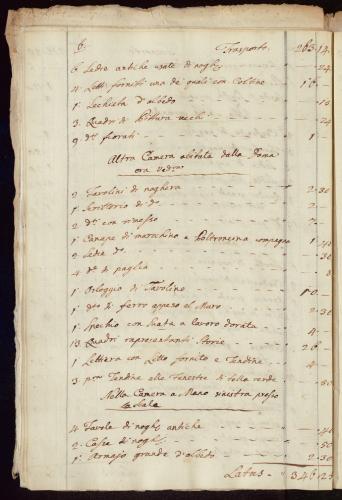 6. Trasporto. 263.14
6. Sedie antiche usate di nogh.a 24
4. Letti forniti uno de quali con Coltine 16.
1. Lechiera d'albeto 10
3. Quadri di Pittura vechi 24
9. d.ti fiorati 1.
Altra Camera abitata dalla Dama
ora ved.va
2. Tavolini di noghera 2.30
1. Scrittorio di d.o 2.
2. d.ti con rimesso 2.
1. Canape di marochino e Poltroncina compagna 1.40
2. Sedie d.e 30
4. d.e di paglia 8
1. Orloggio di Tavolino 10.
1. d.to di ferro appeso al Muro 2.30
1. Spechio con Soaza a lavoro dorata 4.
13. Quadri rapresentanti Storie 26.
1. Lettera con Letto fornito e Tendine 4.
3. Tendine alle Fenestre di tella verde 50
Nella Camera a Mano sinistra presso
la Scala
4. Tavole di nogh.a antiche 40
2. Casse di nogh.a 50
1. Armajo grande d'albeto 2.30
Latus 346.25